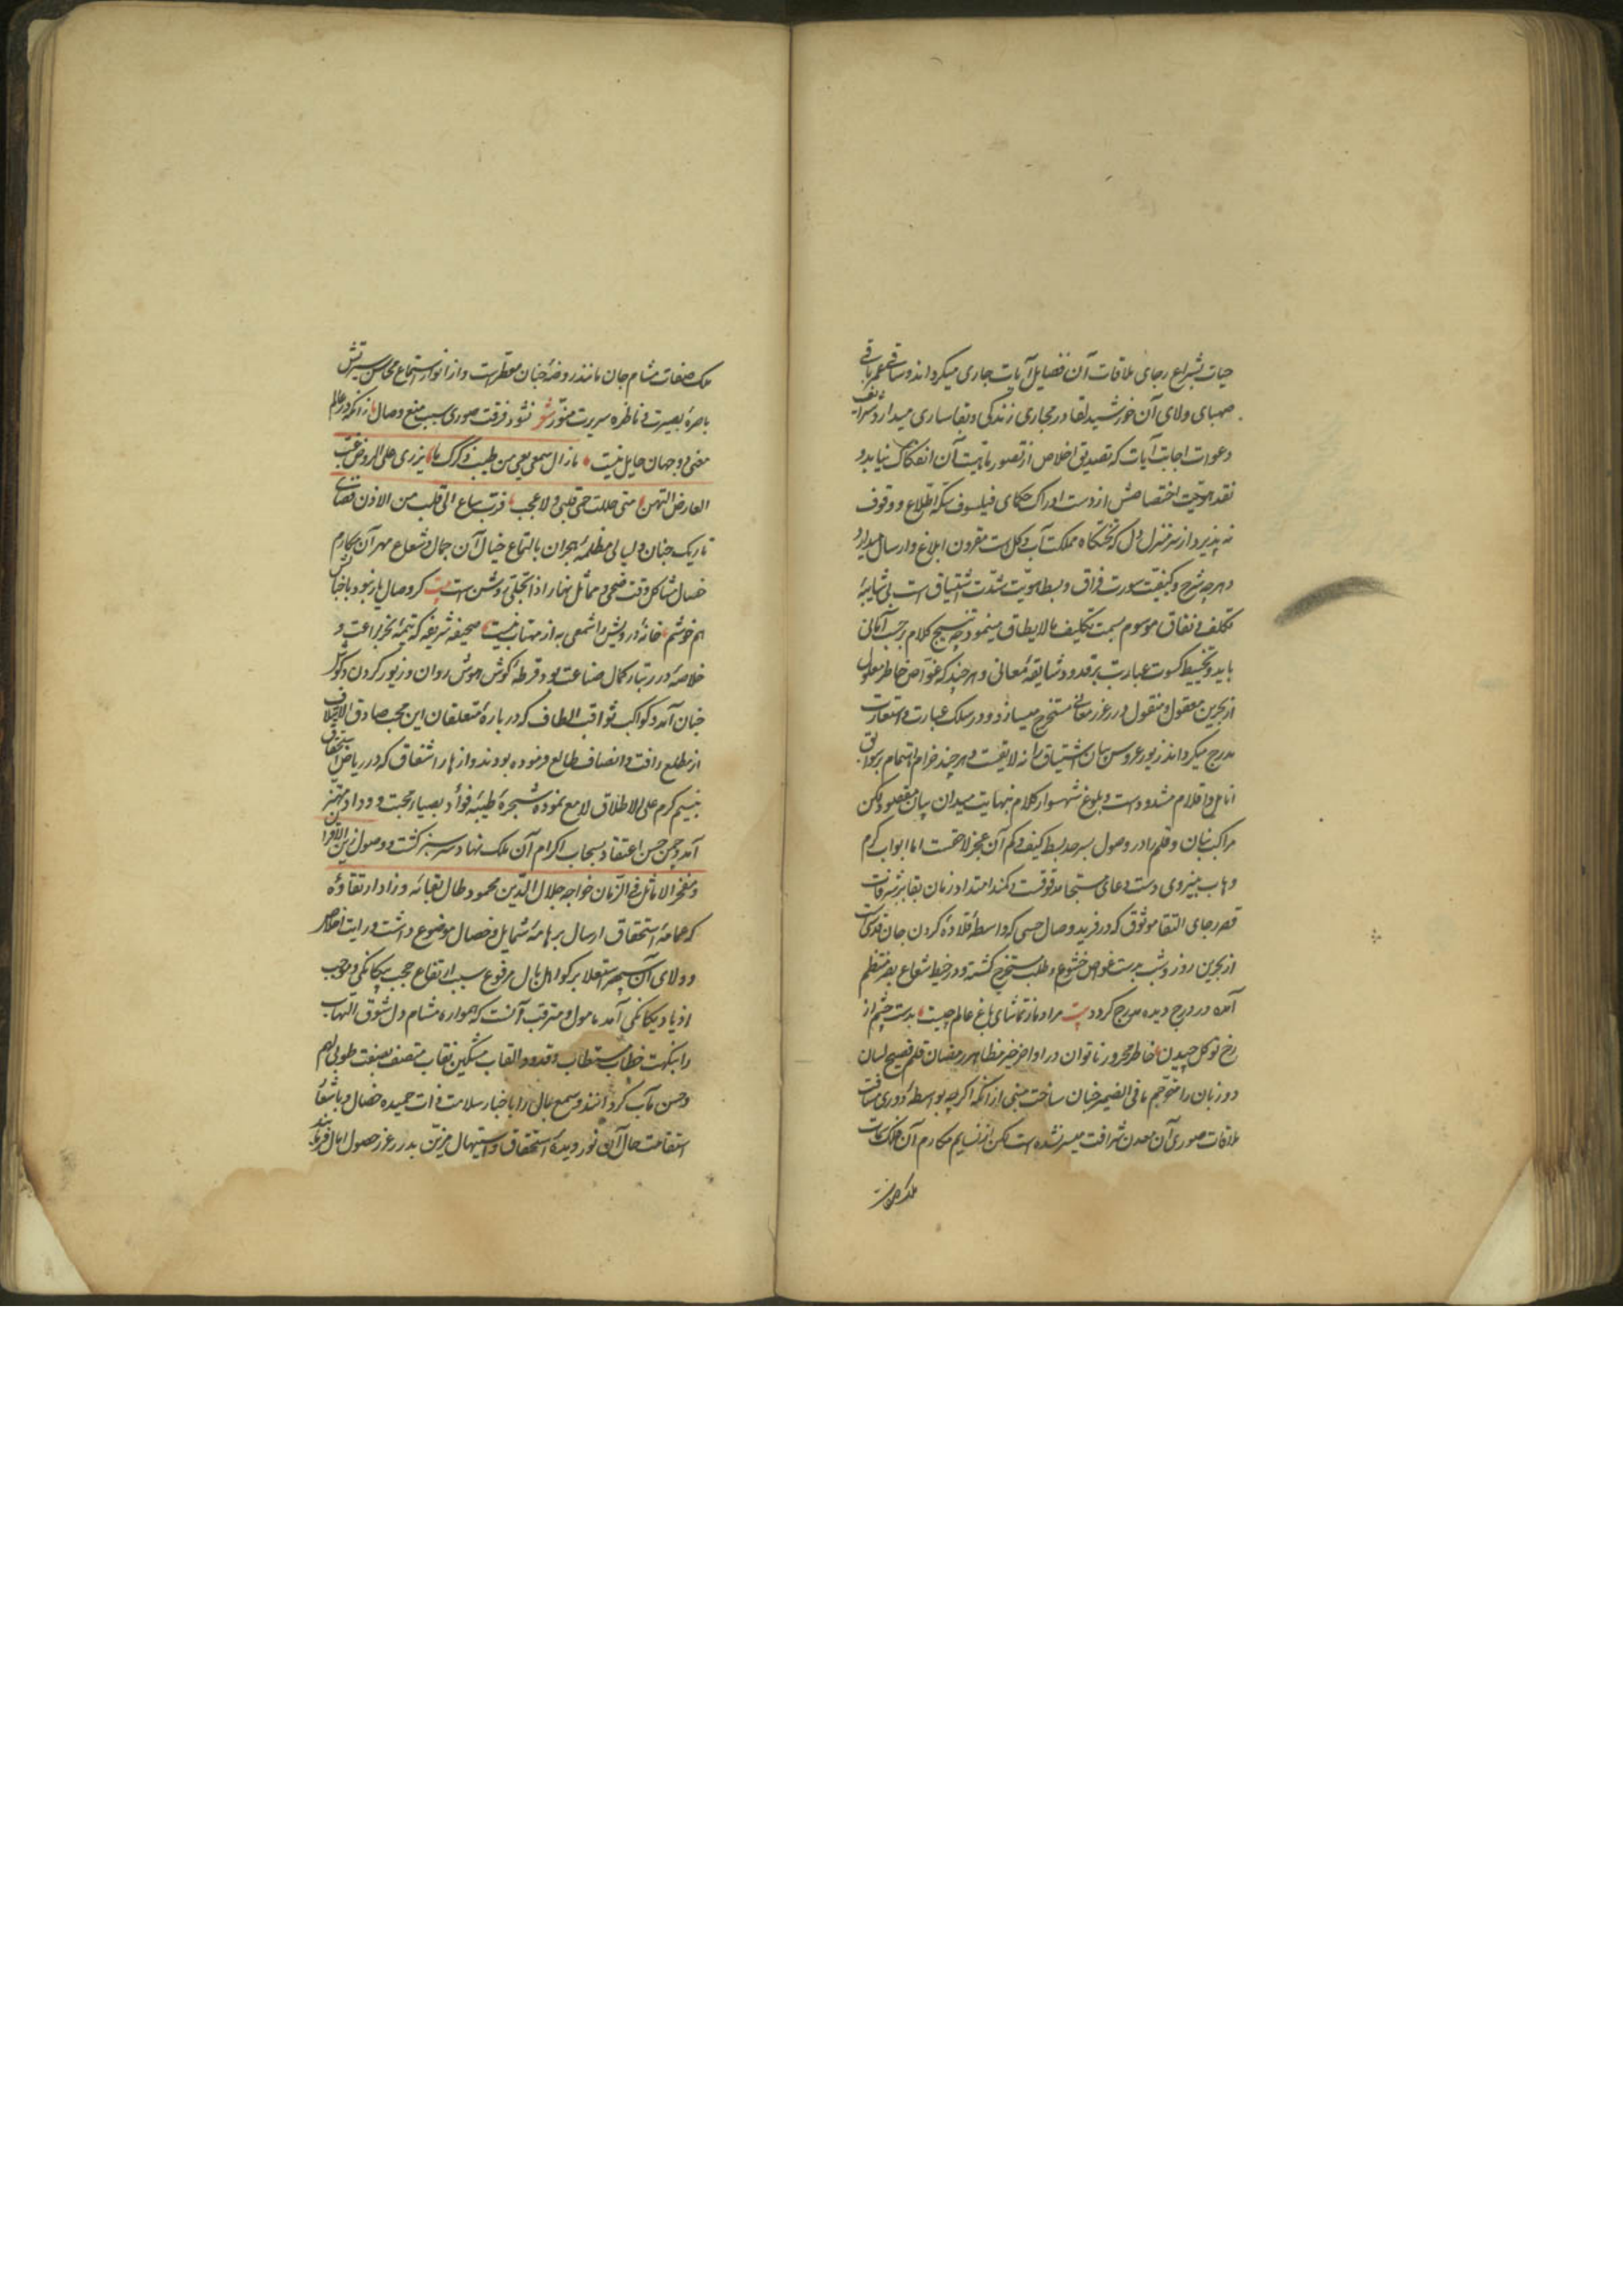 حیات بشراع رجای ملاقات آن فضایل آیات جاری میکرداند و ساقی عمر باقی
صهبای ولای آن خورشید لقا در مجاری زندکی و بقا ساری میدارد و شرایف
دعوات اجابت آیات که تصدیق اخلاص از تصور ماهیت آن انفکاک نیابد و
نقد هویت اختصاصش از دست ادراک حکمای فیلسوف سکه اطلاع و وقوف
نه پذیرد از سر منزل دل که تختکاه مملکت آب و کل است مقرون ابلاغ و ارسال میدارد
و هر چه شرح و کیفیت سورت فراق و بسط هویت شدت اشتیاق است بی شایبهٔ
تکلف و نفاق موسوم بسمت تکلیف مالایطاق مینمود چه نسیج کلام بر حسب امکانی
باید و تخییط کسوت عبارت بر قدود شایقهٔ معانی و هر چند که غواص خاطر معلول
از بحرین معقول و منقول درر غرر معانی مستخرج میسازد و در سلک عبارت و استعارت
مدرج میکرداند زیور عروس بیان اشتیاق را نه لایقست و هر چند خرام اهتمام بر سوابق
انامل و اقلام مشدودست و بلوغ شهسوار کلام بنهایت میدان بیان مقصود لکن
مراکب بنان و قلم را در وصول بسرحد بسط کیف و کم آن عجز لاحقست اما ابواب کرم
وهاب بنیروی دست دعای مستجاب موقوفست و کمند امتداد زمان بقا بر شرفات
قصر رجای التقا موثوق که در فرید وصال حسی که واسطهٔ قلادهٔ کردن جان قدسیست
از بحرین روز و شب بدست غواص خشوع و طلب مستخرج کشته و در خیط شعاع بصر منتظم
آمده در درج دیده مدرج کردد بیت مراد ما ز تماشای باغ عالم چیست بدست چشم از
رخ تو کل چیدن خاطر محرور ناتوان در اواخر خیر مظاهر رمضان قلم فصیح لسان
دو زبان را مترجم ما فی الضمیر جنان ساخت مبنی از آنکه اکرچه بواسطهٔ دوری مسافت
ملاقات صوری آن معدن شرافت میسر نشده است لکن از نسایم مکارم آن ملک
ملک صفات
ملک صفات مشام جان مانند روضهٔ جنان معطرست و از انوار استماع محاسن سیرتش
باصرهٔ بصیرت و ناظره سریرت منور شعر نشود فرقت صوری سبب منع وصال زانکه در عالم
معنی دو جهان حایل نیست ما زال سمعی یعی من طیب ذکرک ما یزری علی الروض غب
العارض الهتن متی حللت حمی قلبی و لا عجب فرب ساع الی قلب من الاذن فضای
تاریک جنان و لیالی مظلمهٔ هجران بالتماع خیال آن جمال و شعاع مهر آن مکارم
خصال مشاکل وقت ضحی و مماثل نهار اذا تجلی روشن است بیت کر وصال یار نبود با خیالش
هم خوشم خانهٔ درویش را شمعی به از مهتاب نیست صحیفه شریفه که تیمهٔ بحر براعت و
خلاصهٔ درر تبار کمال صناعت بود قرطهٔ کوش هوش روان و زیور کردن و کوش
جنان آمد و کواکب ثواقب الطاف که دربارهٔ متعلقان این محب صادق الایتلاف
از مطلع رافت و انصاف طالع فرموده بودند و ازهار اشفاق که در ریاض استحقاق
بنسیم کرم علی الاطلاق لامع نموده شجرهٔ طیبهٔ فؤاد بصبا محبت و وداد مهتز
آمد و چمن حسن اعتقاد بسحاب اکرام آن ملک نهاد سرسبز کشت و وصول زین الاقران
و مفخر الاماثل فی الزمان خواجه جلال الدین محمود طال بقائه و زاد ارتقاؤه
که عمامهٔ استحقاق ارسال بر هامهٔ شمایل و خصال موضوع داشت و رایت اخلاص
و ولای آن سپهر استعلا بر کواهل بال مرفوع سبب ارتفاع حجب بیکانکی و موجب
ازدیاد یکانکی آمد مامول و مترقب آنست که همواره مشام دل شوق التهاب
را بنکهت خطاب مستطاب و قدود القاب مشکین نقاب متصف بصفت طوبی لهم
و حسن مآب کردانند و سمع بال را باخبار سلامت ذات حمیده خصال و باشعار
استقامت حال آن نور دیدهٔ استحقاق و استیهال مزین بدرر غرر حصول امال فرمایند